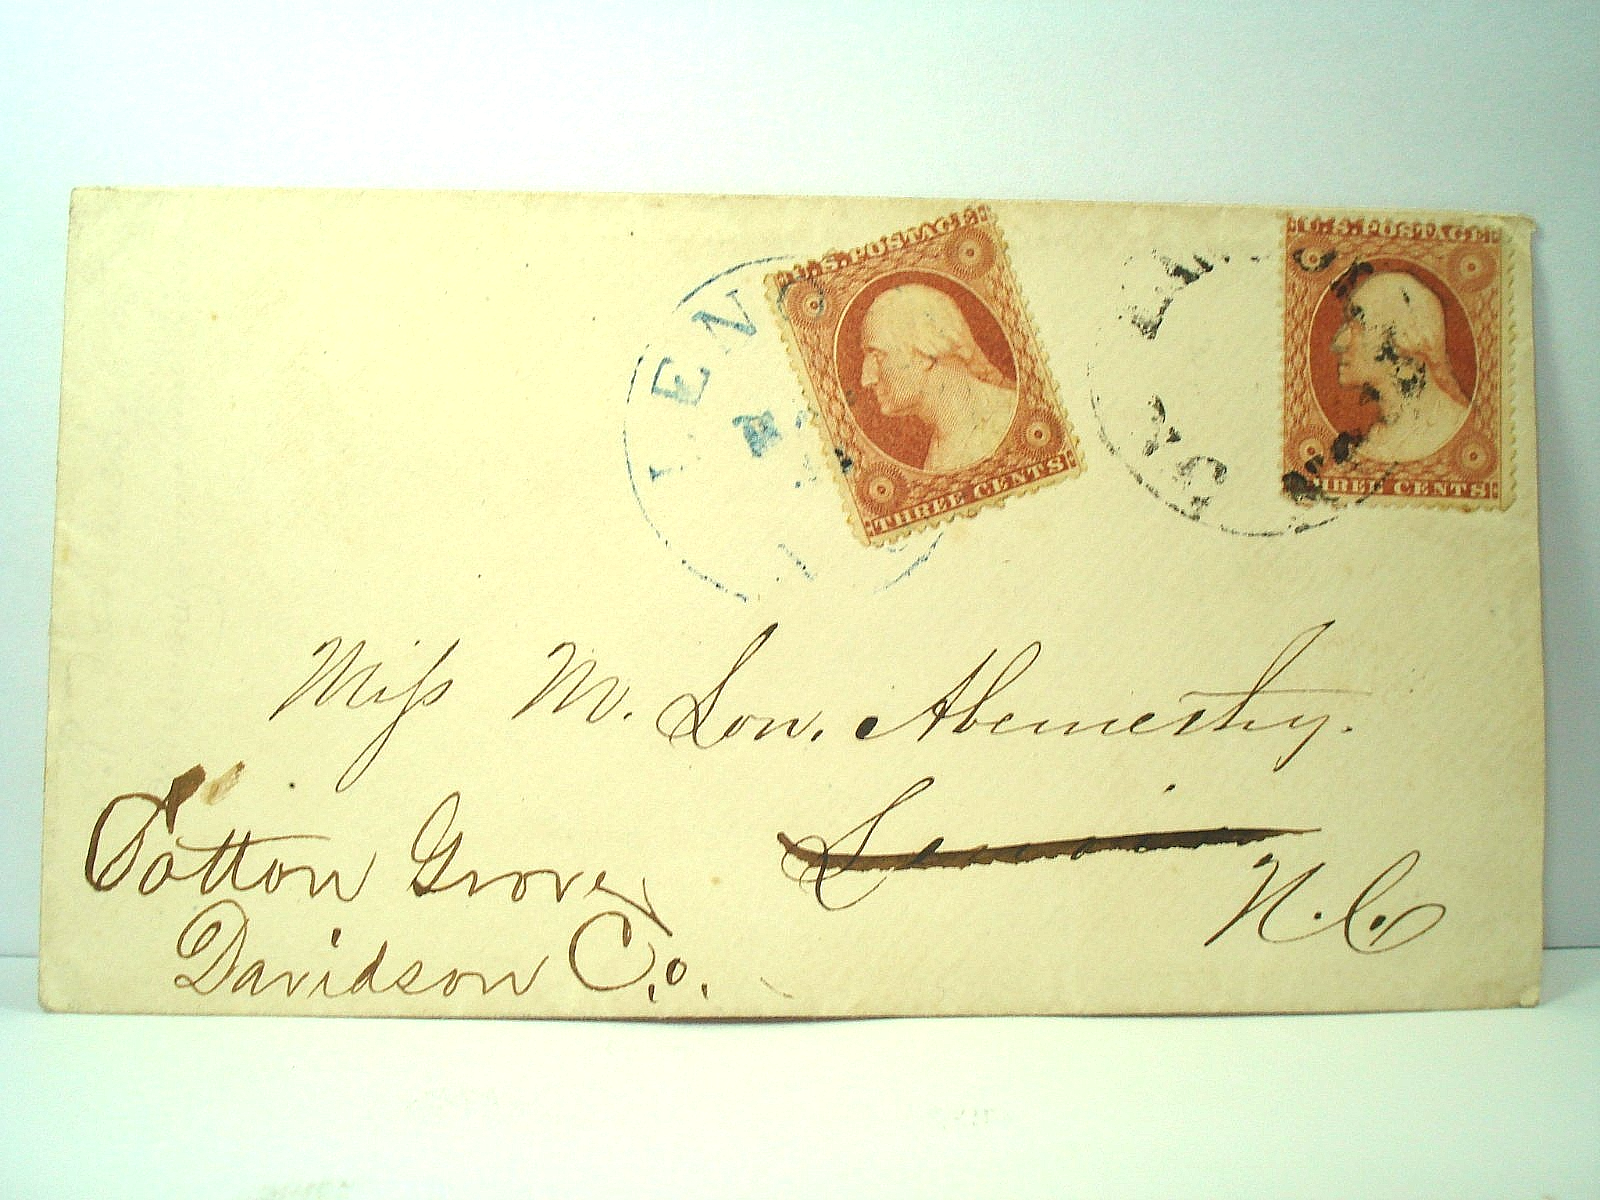 U.S. POSTAGE
THREE CENTS
U.S. POSTAGE
THREE CENTS
LENO
Miss M. Lou. Abernethy.
Lenoir
N. C.
Cotton Grove,
Davidson Co.